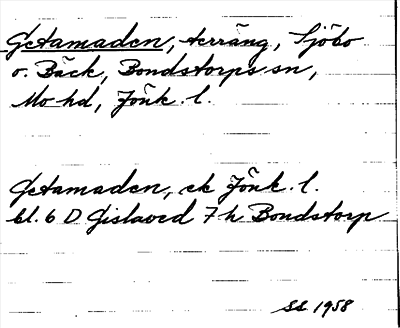 Getamaden, terräng, Sjöbo
o. Bäck, Bondstorps sn,
Mo hd, Jönk. l.
Getamaden, ek Jönk. l.
bl. 6 D Gislaved 7 h Bondstorp
SS 1958